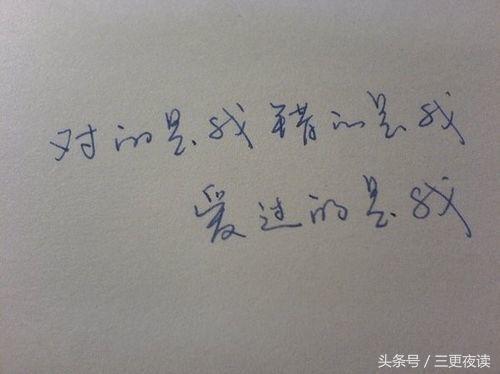 对的是我错的是我
爱过的是我
头条号／三更夜读